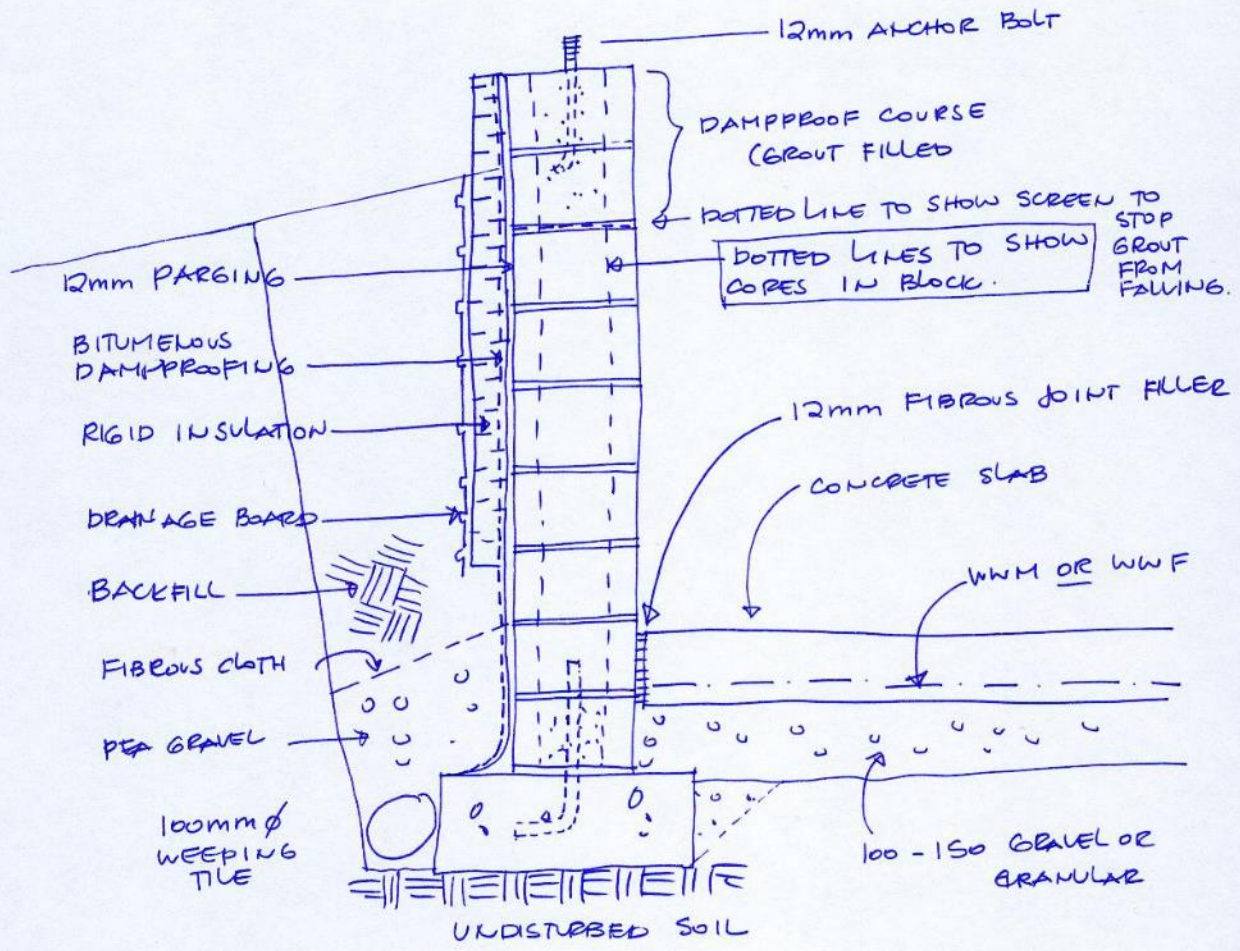 12mm ANCHOR BOLT
DAMPPROOF COURSE
(GROUT FILLED
DOTTED LINE TO SHOW SCREEN TO
STOP
GROUT
FROM
FALLING.
DOTTED LINES TO SHOW
CORES IN BLOCK.
12mm PARGING
BITUMENOUS
DAMPPROOFING
RIGID INSULATION
DRAINAGE BOARD
BACKFILL
FIBROUS CLOTH
PEA GRAVEL
100mm ϕ
WEEPING
TILE
12mm FIBROUS JOINT FILLER
CONCRETE SLAB
WWM OR WWF
100-150 GRAVEL OR
GRANULAR
UNDISTURBED SOIL